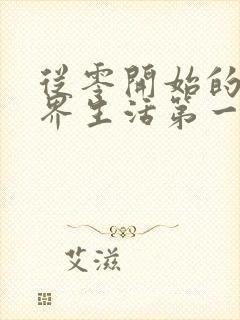 從零開始的
界生活第一
艾滋